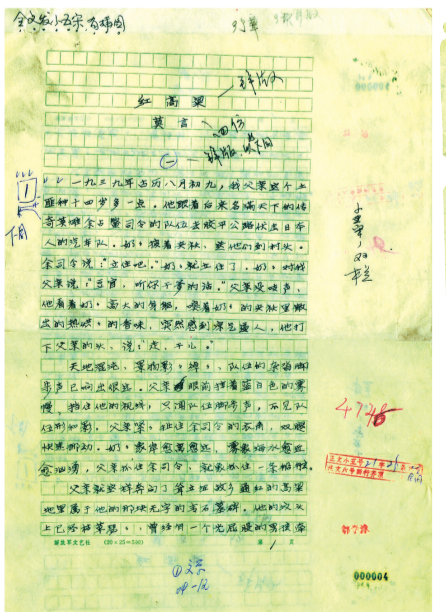 全文发小五宋
红高粱
莫言
一
一九三九年古历八月初九,我父亲这个土
匪种十四岁多一点。他跟着后来名满天下的传
奇英雄余占鳌司令的队伍去胶平公路伏击日本
人的汽车队。奶奶披着夹袄,送他们到村头。
余司令说:“立住吧。”奶奶就立住了。奶奶对我
父亲说:“豆官,听你干爹的话。”父亲没吱声,
他看着奶奶高大的身躯,嗅着奶奶的夹袄里散
出的热烘烘的香味,突然感到凉气逼人,他打
下父亲的头,说:“走,干儿。”
天地混沌,景物影影绰绰,队伍的杂沓脚
步声已响出很远。父亲眼前挂着蓝白色的雾
幔,挡住他的视线,只闻队伍脚步声,不见队
伍形和影。父亲紧紧扯住余司令的衣角,双腿
快速挪动。奶奶像岸愈离愈远,雾像海水愈近
愈汹涌,父亲抓住余司令,就像抓住一条船舷。
父亲就这样奔向了耸立在故乡通红的高粱
地里属于他的那块无字的青石墓碑。他的坟头
上已经枯草瑟瑟,曾经有一个光屁股的男孩牵
解放军文艺社 (20×25=240) 第 1 页
下同
4746
000004